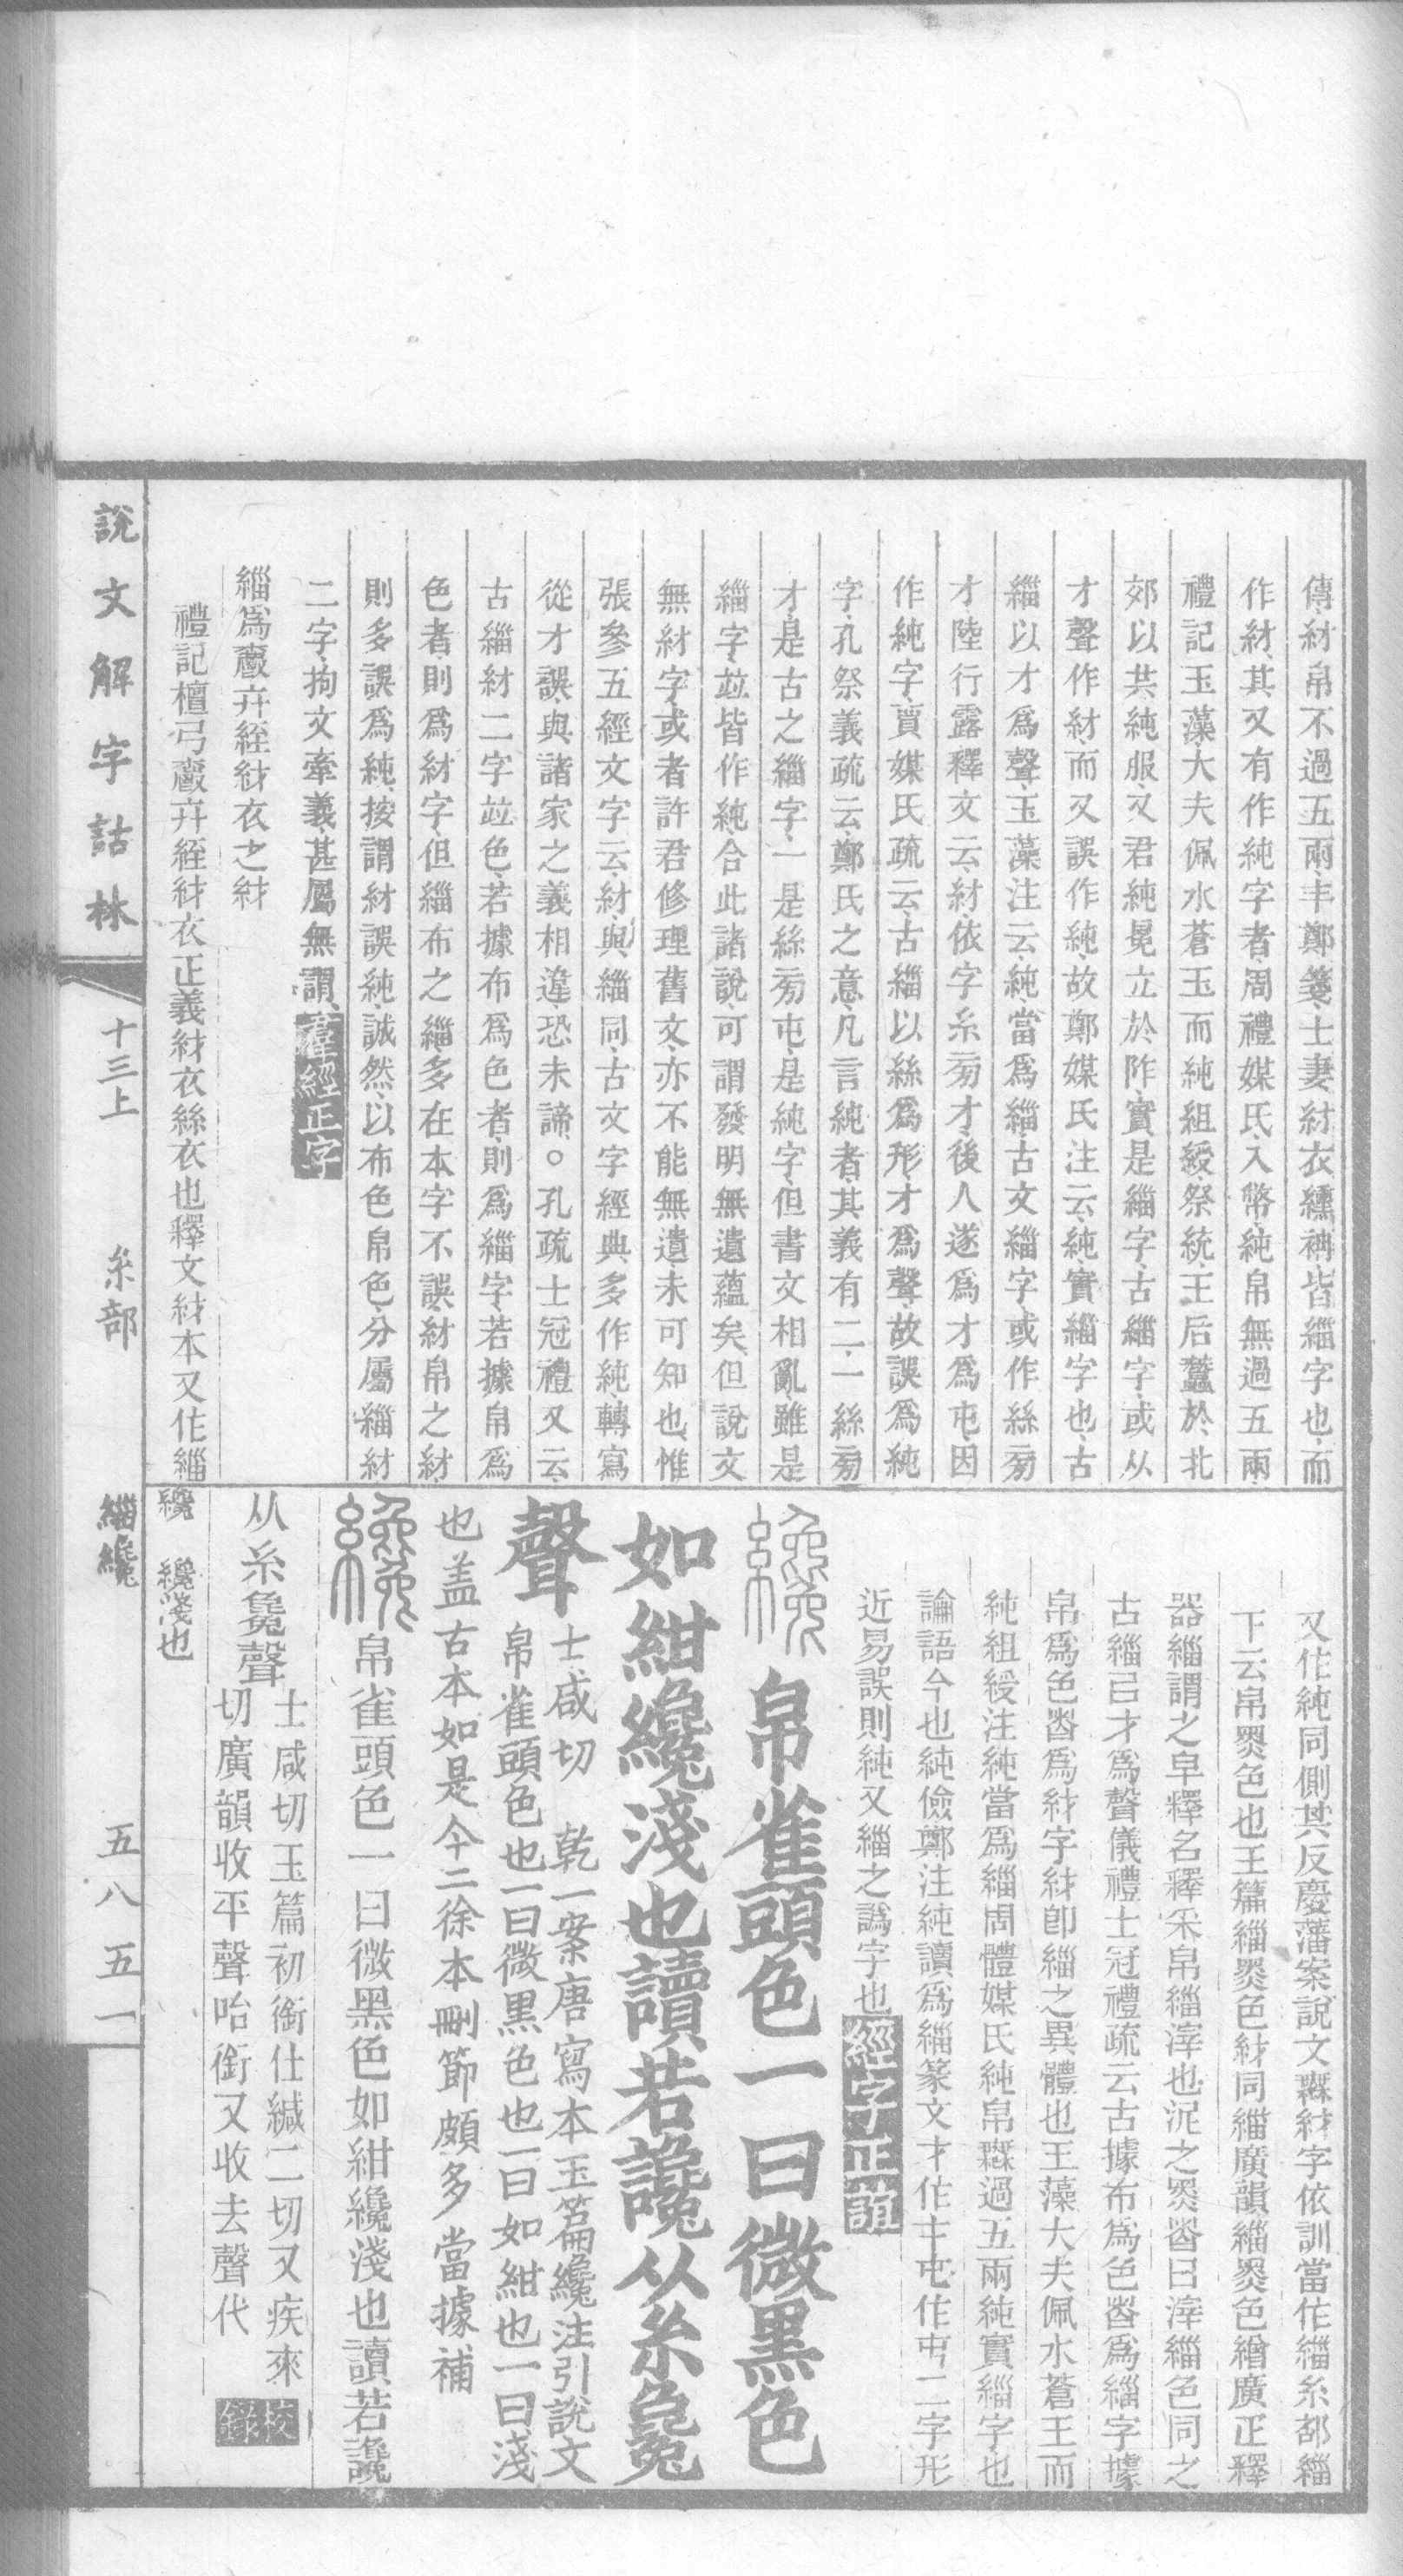 傳紂帛不過五兩丰鄭箋士妻紂衣纁袡皆緇字也而
作紂其又有作純字者周禮媒氏入幣純帛無過五兩
禮記玉藻大夫佩水蒼玉而純組綬祭統王后蠶於北
郊以共純服又君純冕立於阼實是緇字古緇字或从
才聲作紂而又誤作純故鄭媒氏注云純實緇字也古
緇以才爲聲玉藻注云純當爲緇古文緇字或作絲㫄
才陸行露釋文云紂依字糸㫄才後人遂爲才爲屯因
作純字賈媒氏疏云古緇以絲爲形才爲聲故誤爲純
字孔祭義疏云鄭氏之意凡言純者其義有二一絲㫄
才是古之緇字一是絲㫄屯是純字但書文相亂雖是
緇字竝皆作純合此諸說可謂發明無遺蘊矣但說文
無紂字或者許君修理舊文亦不能無遺未可知也惟
張參五經文字云紂與緇同古文字經典多作純轉寫
從才誤與諸家之義相違恐未諦○孔疏士冠禮又云
古緇紂二字竝色若據布爲色者則爲緇字若據帛爲
色者則爲紂字但緇布之緇多在本字不誤紂帛之紂
則多誤爲純按謂紂誤純誠然以布色帛色分屬緇紂
二字拘文牽義甚屬無謂羣經正字
緇爲𪎮弁絰紂衣之紂
禮記檀弓𪎮弁絰紂衣正義紂衣絲衣也釋文紂本又作緇
又作純同側其反慶藩案說文無紂字依訓當作緇糸部緇
下云帛黑色也玉篇緇黑色紂同緇廣韻緇黑色繒廣疋釋
器緇謂之皁釋名釋采帛緇滓也泥之黑者曰滓緇色同之
古緇㠯才爲聲儀禮士冠禮疏云古據布爲色者爲緇字據
帛爲色者爲紂字紂卽緇之異體也玉藻大夫佩水蒼玉而
純組綬注純當爲緇周體媒氏純帛無過五兩純實緇字也
論語今也純儉鄭注純讀爲緇篆文才作屯作二字形
近易誤則純又緇之譌字也經字正誼
纔帛雀頭色一曰微黑色
如紺纔淺也讀若讒从糸毚
聲士咸切 乾一案唐寫本玉篇纔注引說文
帛雀頭色也一曰微黑色也一曰如紺也一曰淺
也盖古本如是今二徐本刪節頗多當據補
纔帛雀頭色一曰微黑色如紺纔淺也讀若讒
从糸毚聲士咸切玉篇初銜仕緘二切又疾來
切廣韻收平聲咍銜又收去聲代校錄
纔 纔淺也
說文解字詁林 十三上 糸部 緇纔 五八五一